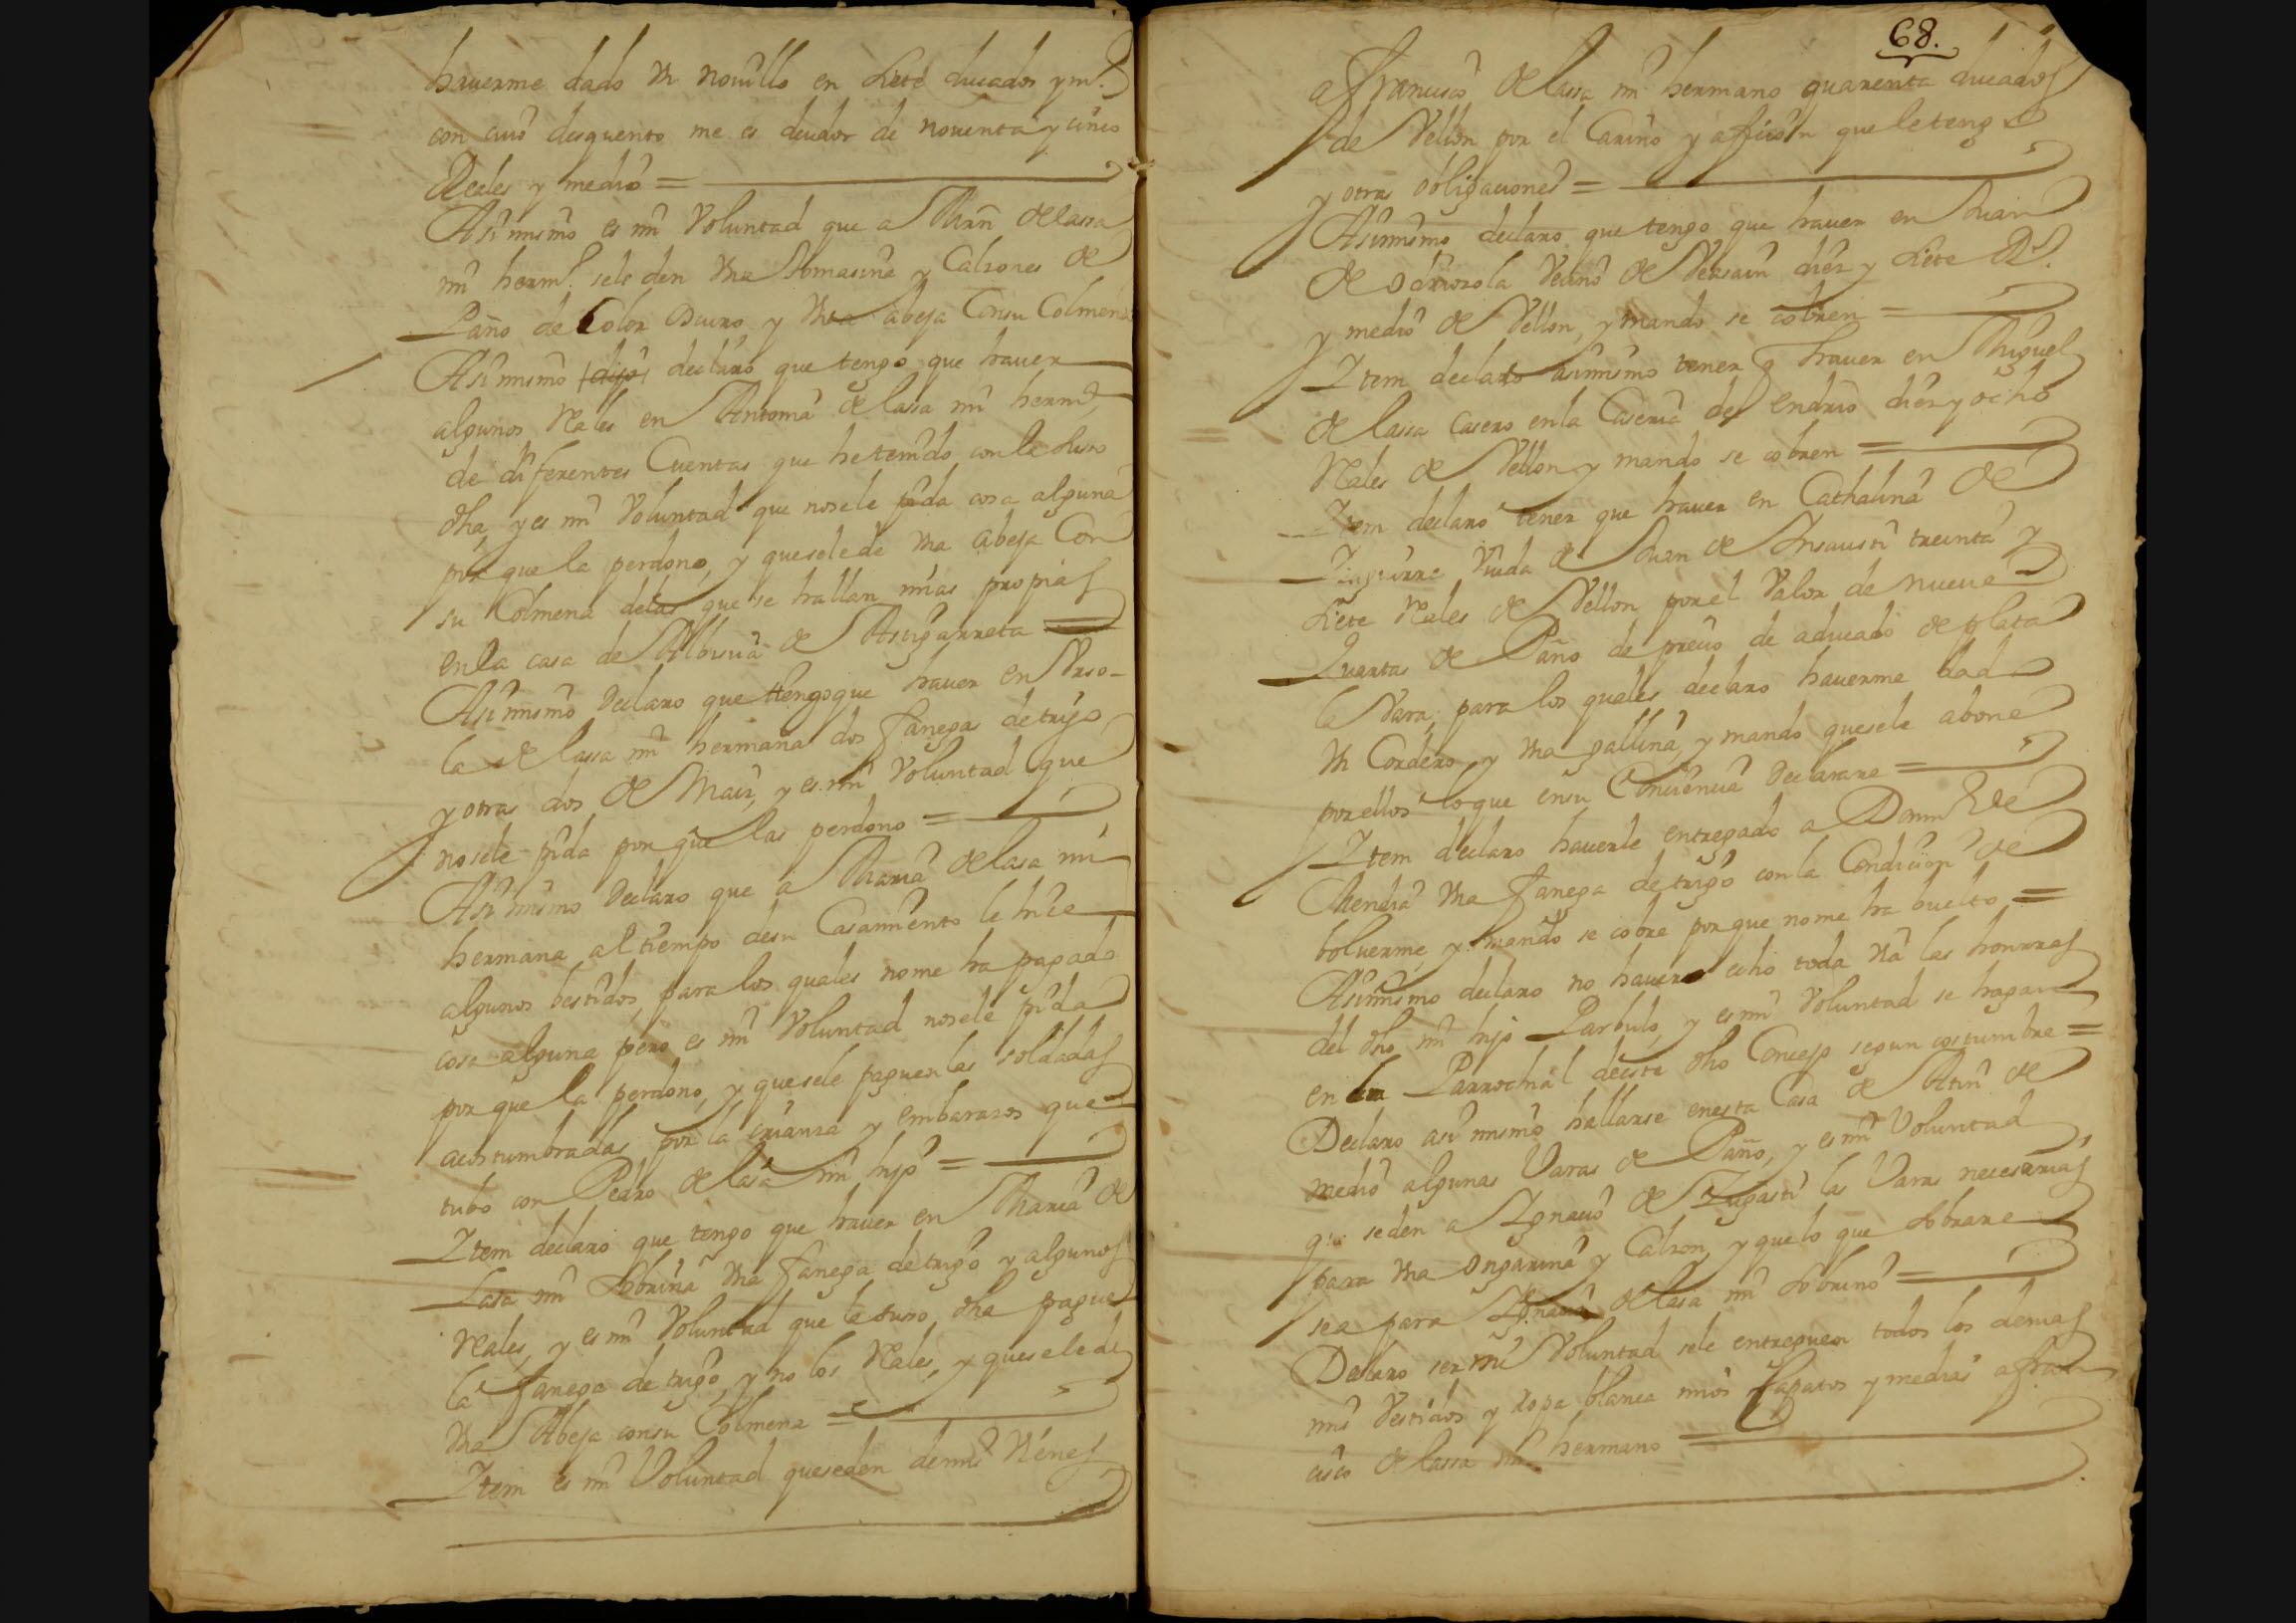 hauerme dado Vn nouillo en siete ducados y mº
con cuio desquento me es deudor de nouenta y cinco
Reales y medio =
Asimismo es mi Voluntad que a Mrn de lassa
mi hermº. sele den Vna Romasina y Calzones de
Paño de Color Escuro, y Vna abeja Consu Colmena
Asimismo dijo declaro que tengo que hauer
algunos Reales en Antonia de lassa mi hermª
de diferentes Cuentas que hetenido con la suso
dha, y es mi Voluntad que nosele pida cosa alguna
por que la perdono, y queselede Vna abeja Con
su Colmena delas que se hallan mias propias
en la casa de Albisua de Astigarreta =
Asimismo Declaro que tengoque hauer en Vrso-
la de lassa mi hermana dos fanegas detrigo
y otras dos de Maiz, y es mi Voluntad que
nosele pida por que las perdono =
Asimismo Declaro que a Maria de lasa mi
hermana al tiempo desu Casamiento le hice
algunos bestidos, para los quales nome ha pagado
cosa alguna pero es mi Voluntad nosele pida
por que la perdono, y quesele paguen las soldadas
acostumbradas por la crianza y embarazos que
tubo con Pedro de lasa mi hijo =
Item declaro que tengo que hauer en Maria de
Lasa mi sobrina Vna fanega detrigo y algunos
Reales, y es mi Voluntad que la suso dha pague
la fanega de trigo, y no los Reales, y queselede
Vna Abeja consu Colmena =
Item es mi Voluntad queseden demis Vienes
68.
a Francisco de lassa mi hermano quarenta ducados
de Vellon por el Cariño y afficion que letengo
y otras obligaciones =
Asimismo declaro que tengo que hauer en Juan
de Odriozola Vecino de Veasain diez y siete Rs.
y medio de Vellon, y mando se cobren =
Item declaro asimismo tener q hauer en Miguel
de lassa Casero en la Caseria del endrio diez y ocho
Reales de Vellon y mando se cobren =
Item declaro tener que hauer en Cathalina de
Viuda de Juan de Insausti treinta y
siete Reales de Vellon por el Valor de nueue
Quartas de Paño de precio de aducado de plata
la Vara, para los quales declaro hauerme dado
Vn Cordero, y Vna gallina, y mando quesele abone
por ellos lo que ensu Conciencia Declarare =
Item declaro hauerle entregado a Domº de
Mendia Vna fanega de trigo con la Condicion de
boluerme, y mando se cobre por que nome ha buelto =
Asimismo declaro no hauer echo toda Via las honrras
del dho mi hijo Parbulo, y es mi Voluntad se hagan
en la Parrochial deeste dho Concejo segun costumbre =
Declaro asimismo hallarse enesta Casa de Atin de
medio algunas Varas de Paño, y es mi Voluntad
que seden a Ignacio de Zugasti las Varas necesarias
para Vna Ongarina y Calzon, y que lo que sobrare
sea para Ignacio de lasa mi sobrino =
Declaro ser mi Voluntad sele entreguen todos los demas
mis Vestidos y ropa blanca mios Zapatos y medias a fran
cisco de lassa mi hermano =